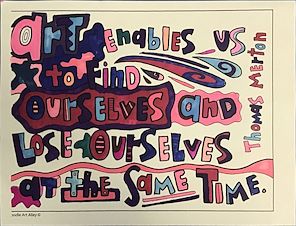 art enables us
to find
OURSELVES and
LOSE OURSELVES
at the Same TIME.
Thomas Merton
Art Alley ©